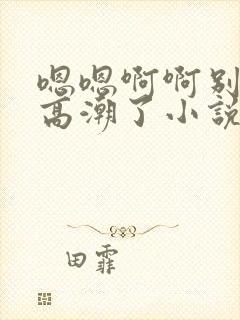 嗯嗯啊啊别
高潮了小说
田霏